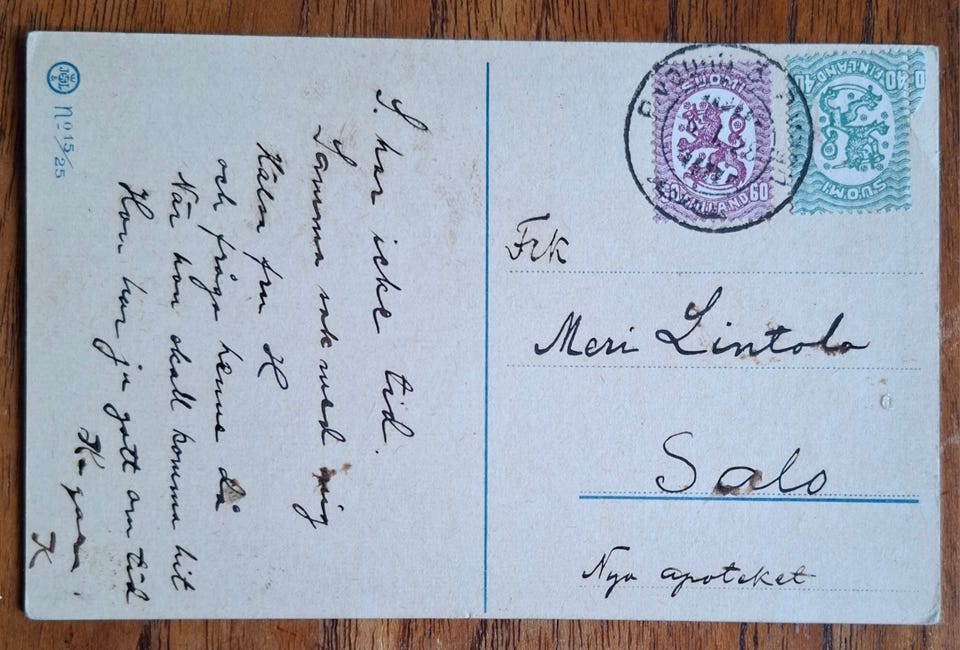 No 15/25
S. har icke tid.
Samma sak med mig
Hälsa fru H
och fråga henne då
När hon skall komma hit
Hon har ju gott om tid
K
SUOMI
FINLAND 60
SUOMI
FINLAND
40 40
Frk
Meri Lintola
Salo
Nya apoteket